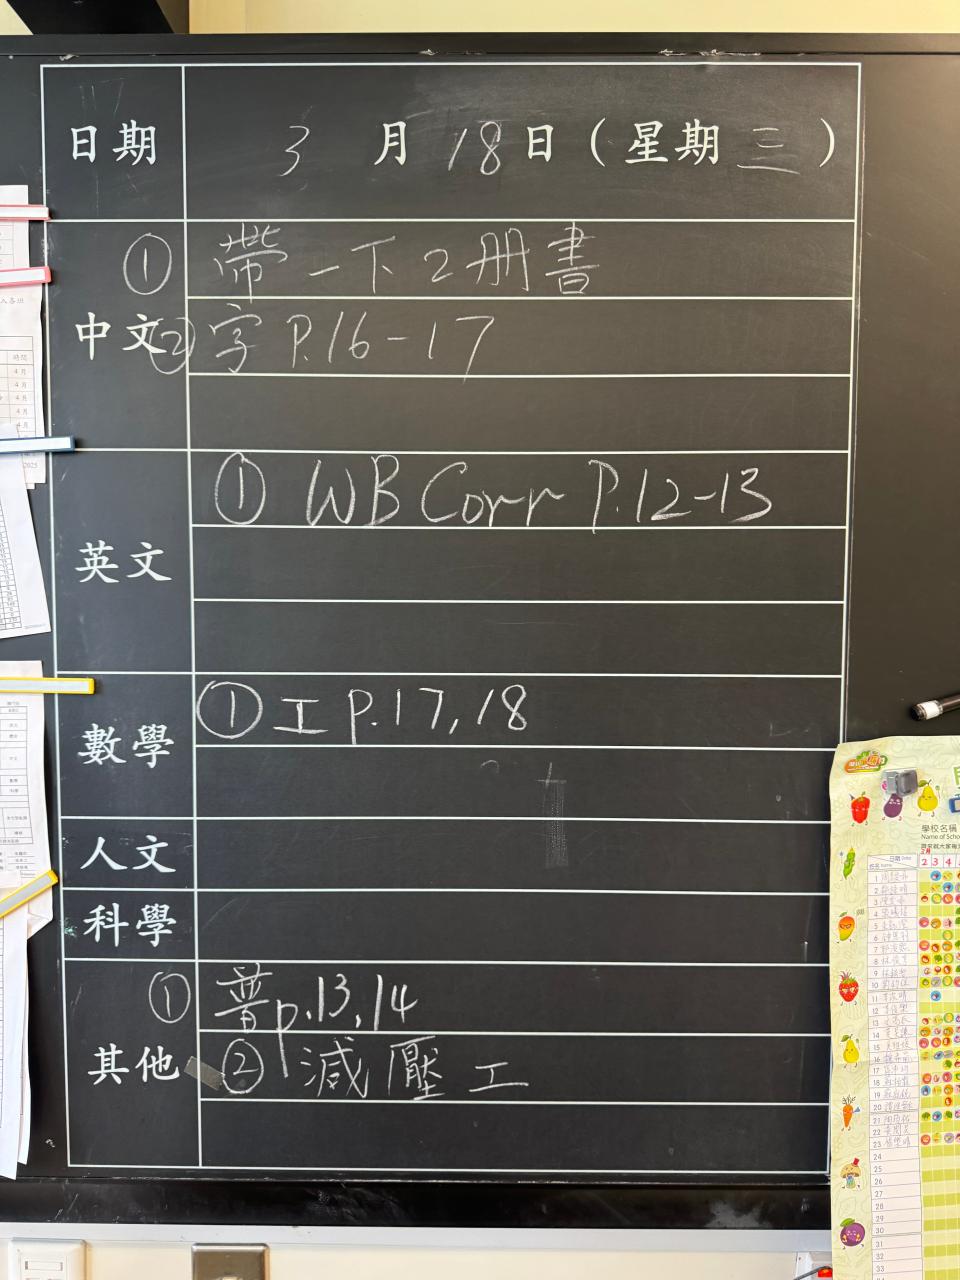 日期 3 月 18 日（星期 三 ）
中文 ① 帶一下2冊書
② 字 P.16-17
英文 ① WB Corr P.12-13
數學 ① 工 p.17,18
人文
科學
其他 ① 普 p.13,14
② 減壓工
時間
4月
4月
4月
4月
4月
2025
學校名稱
Name of School
日期 Date
姓名 Name
2 3 4
1
2
3
4
5
6
7
8
9
10
11
12
13
14
15
16
17
18
19
20
21
22
23
24
25
26
27
28
29
30
31
32
33